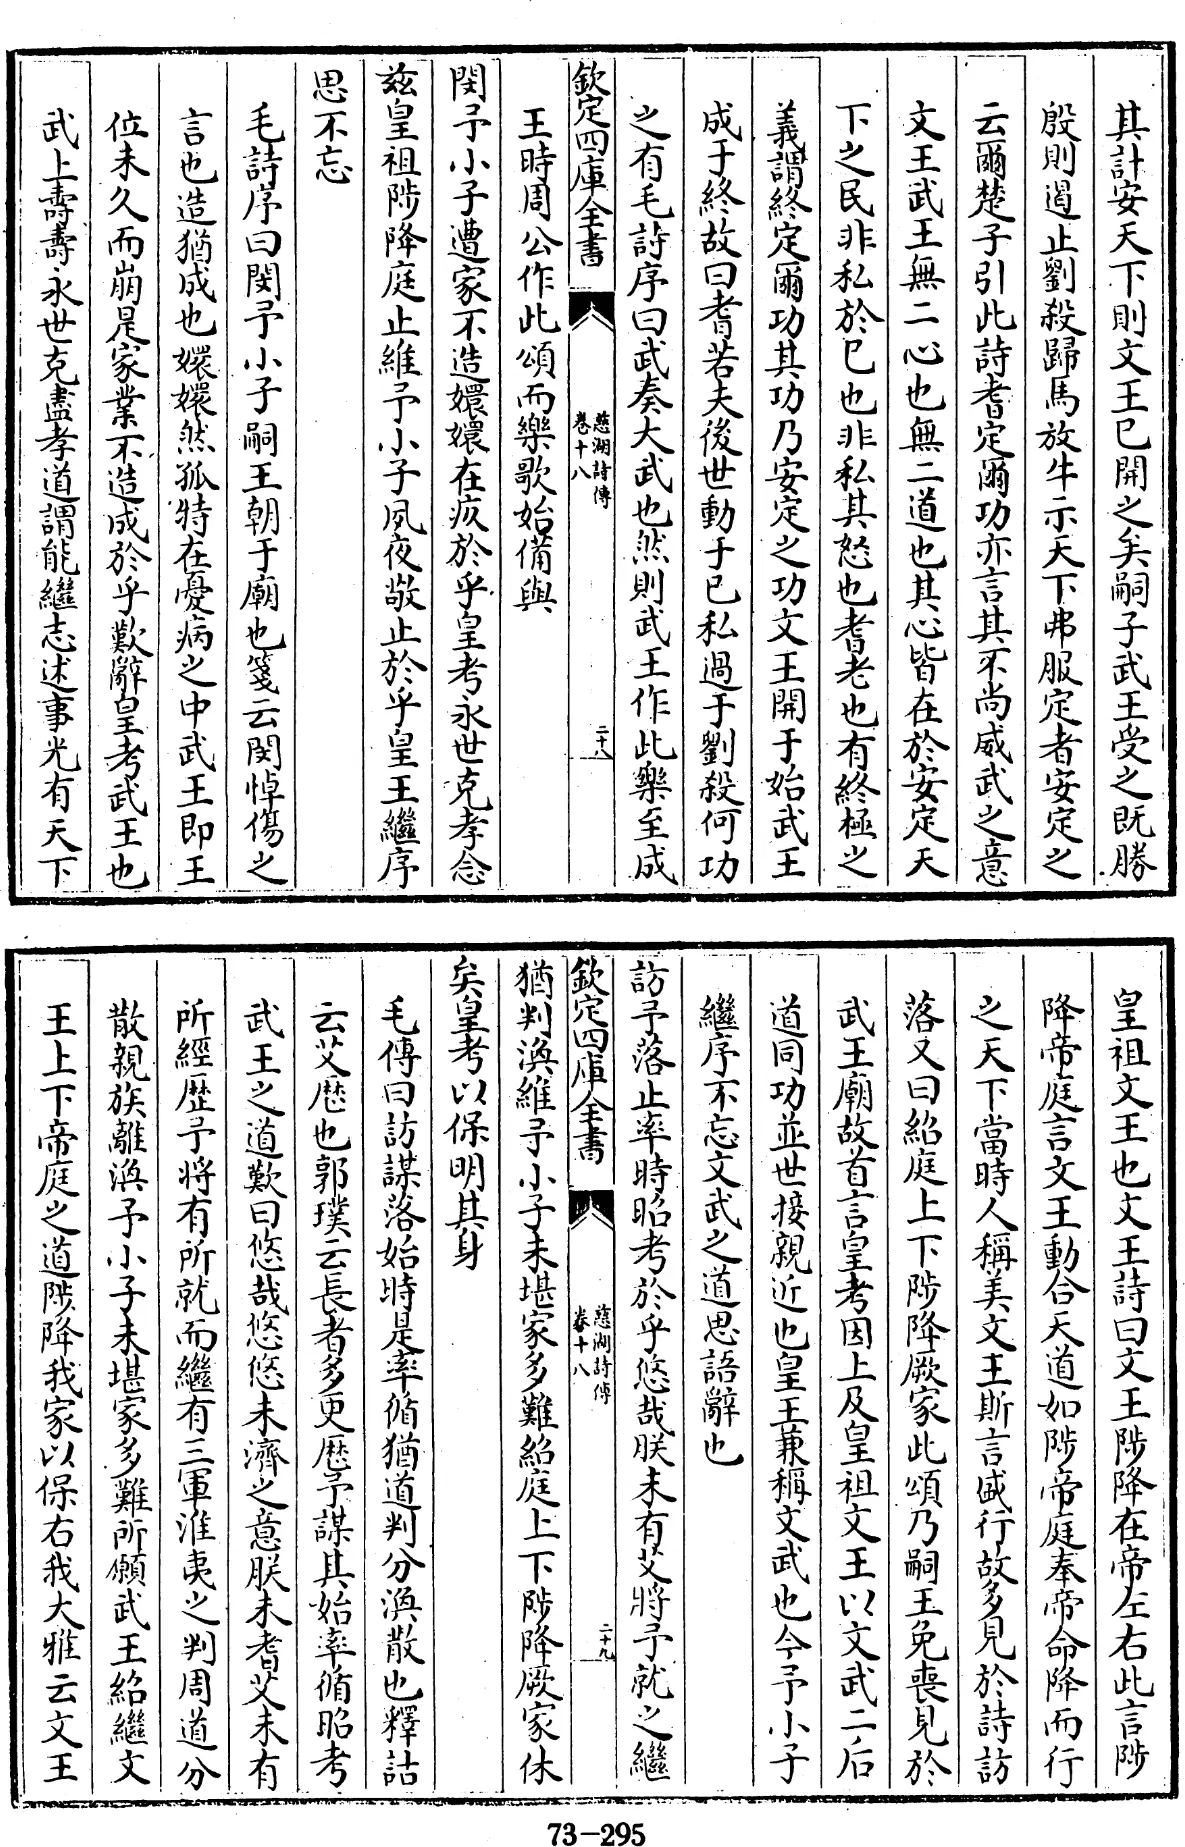 其計安天下則文王已開之矣嗣子武王受之既勝
殷則遏止劉殺歸馬放牛示天下弗服定者安定之
云爾楚子引此詩耆定爾功亦言其不尚威武之意
文王武王無二心也無二道也其心皆在於安定天
下之民非私於已也非私其怒也耆老也有終極之
義謂終定爾功其功乃安定之功文王開于始武王
成于終故曰耆若夫後世動于已私過于劉殺何功
之有毛詩序曰武奏大武也然則武王作此樂至成
欽定四庫全書
慈湖詩傳
卷十八
二十八
王時周公作此頌而樂歌始備與
閔予小子遭家不造嬛嬛在疚於乎皇考永世克孝念
茲皇祖陟降庭止維予小子夙夜敬止於乎皇王繼序
思不忘
毛詩序曰閔予小子嗣王朝于廟也箋云閔悼傷之
言也造猶成也嬛嬛然孤特在憂病之中武王即王
位未久而崩是家業不造成於乎歎辭皇考武王也
武上壽壽永世克盡孝道謂能繼志述事光有天下
皇祖文王也文王詩曰文王陟降在帝左右此言陟
降帝庭言文王動合天道如陟帝庭奉帝命降而行
之天下當時人稱美文王斯言盛行故多見於詩訪
落又曰紹庭上下陟降厥家此頌乃嗣王免喪見於
武王廟故首言皇考因上及皇祖文王以文武二后
道同功並世接親近也皇王兼稱文武也今予小子
繼序不忘文武之道思語辭也
訪予落止率時昭考於乎悠哉朕未有艾將予就之繼
欽定四庫全書
慈湖詩傳
卷十八
二十九
猶判渙維予小子未堪家多難紹庭上下陟降厥家休
矣皇考以保明其身
毛傳曰訪謀落始時是率循猶道判分渙散也釋詁
云艾歷也郭璞云長者多更歷予謀其始率循昭考
武王之道歎曰悠哉悠悠未濟之意朕未耆艾未有
所經歷予將有所就而繼有三軍淮夷之判周道分
散親族離渙予小子未堪家多難所願武王紹繼文
王上下帝庭之道陟降我家以保右我大雅云文王
73-295